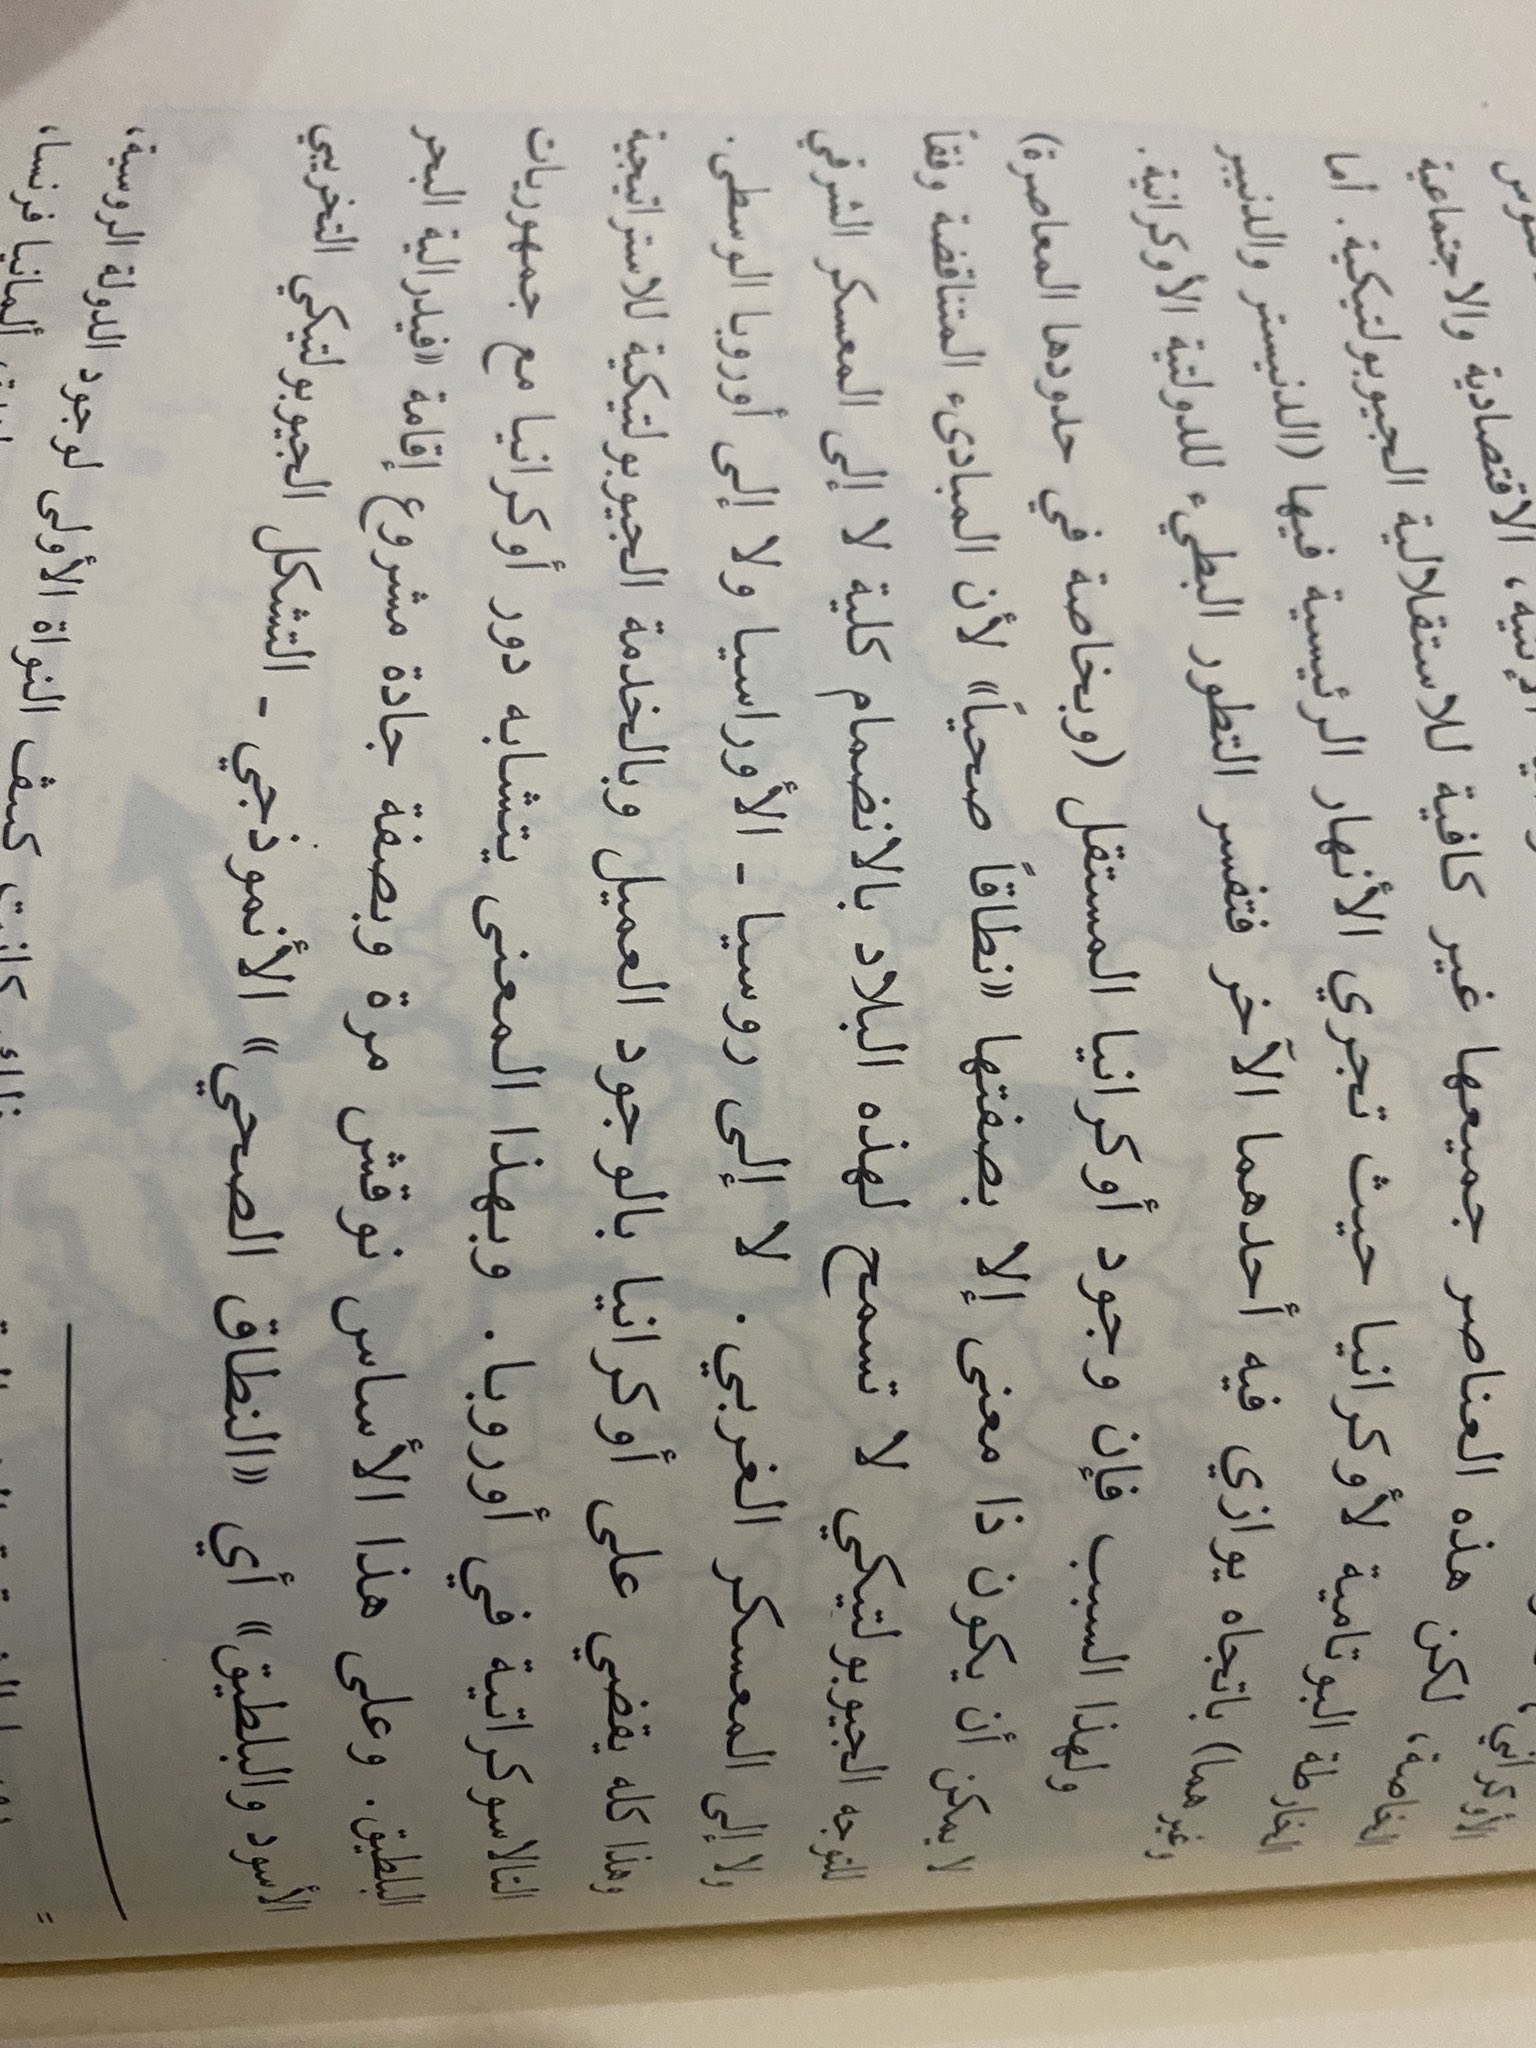 الأوكراني، الاقتصادية والاجتماعية
الخاصة، لكن هذه العناصر جميعها غير كافية للاستقلالية الجيوبولتيكية. أما
الخارطة البوتامية لأوكرانيا حيث تجري الأنهار الرئيسية فيها (الدنيستر والدنيبر
وغيرهما) باتجاه يوازي فيه أحدهما الآخر فتفسر التطور البطيء للدولتية الأوكرانية.
ولهذا السبب فإن وجود أوكرانيا المستقل (وبخاصة في حدودها المعاصرة)
لا يمكن أن يكون ذا معنى إلا بصفتها «نطاقاً صحياً» لأن المبادىء المتناقضة وفقاً
للتوجه الجيوبولتيكي لا تسمح لهذه البلاد بالانضمام كلية لا إلى المعسكر الشرقي
ولا إلى المعسكر الغربي. لا إلى روسيا - الأوراسيا ولا إلى أوروبا الوسطى.
وهذا كله يقضي على أوكرانيا بالوجود العميل وبالخدمة الجيوبولتيكية للاستراتيجية
التالاسوكراتية في أوروبا. وبهذا المعنى يتشابه دور أوكرانيا مع جمهوريات
البلطيق. وعلى هذا الأساس نوقش مرة وبصفة جادة مشروع إقامة «فيدرالية البحر
الأسود والبلطيق» أي «النطاق الصحي» الأنموذجي - التشكل الجيوبولتيكي التخريبي
كييف النواة الأولى لوجود الدولة الروسية،
ألمانيا فرنسا،